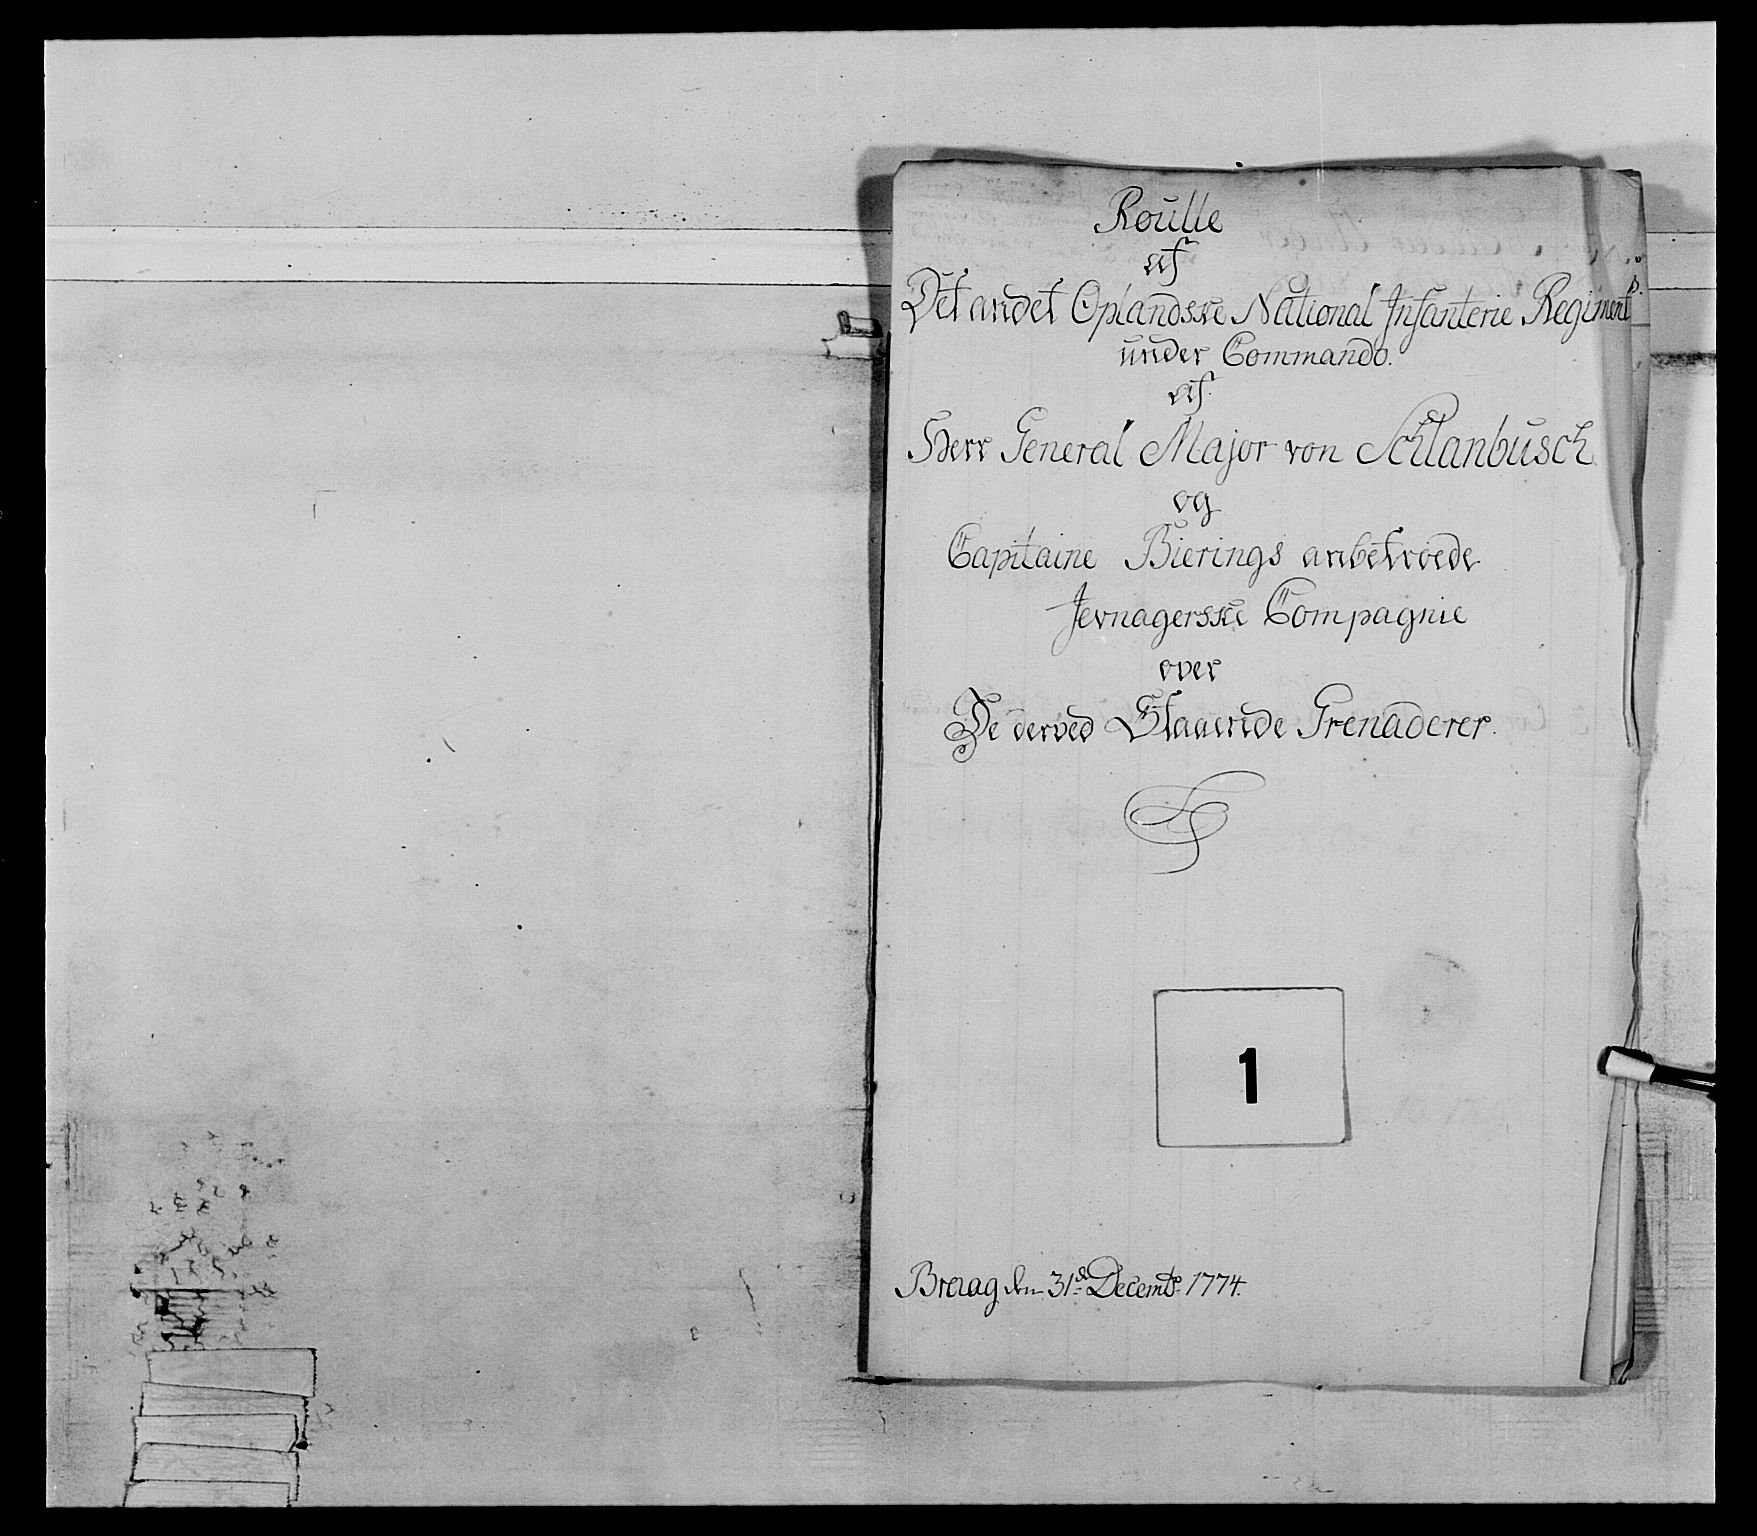 Roulle
af
Det andet Oplandske National Infanterie Regiment
under Commando.
af
Herr General Major von Schlanbusch
og
Capitaine Bierings anbetroede
Jevnagerske Compagnie
over
De derved Staaende Grenaderer.
1
den 31de Decembr 1774.